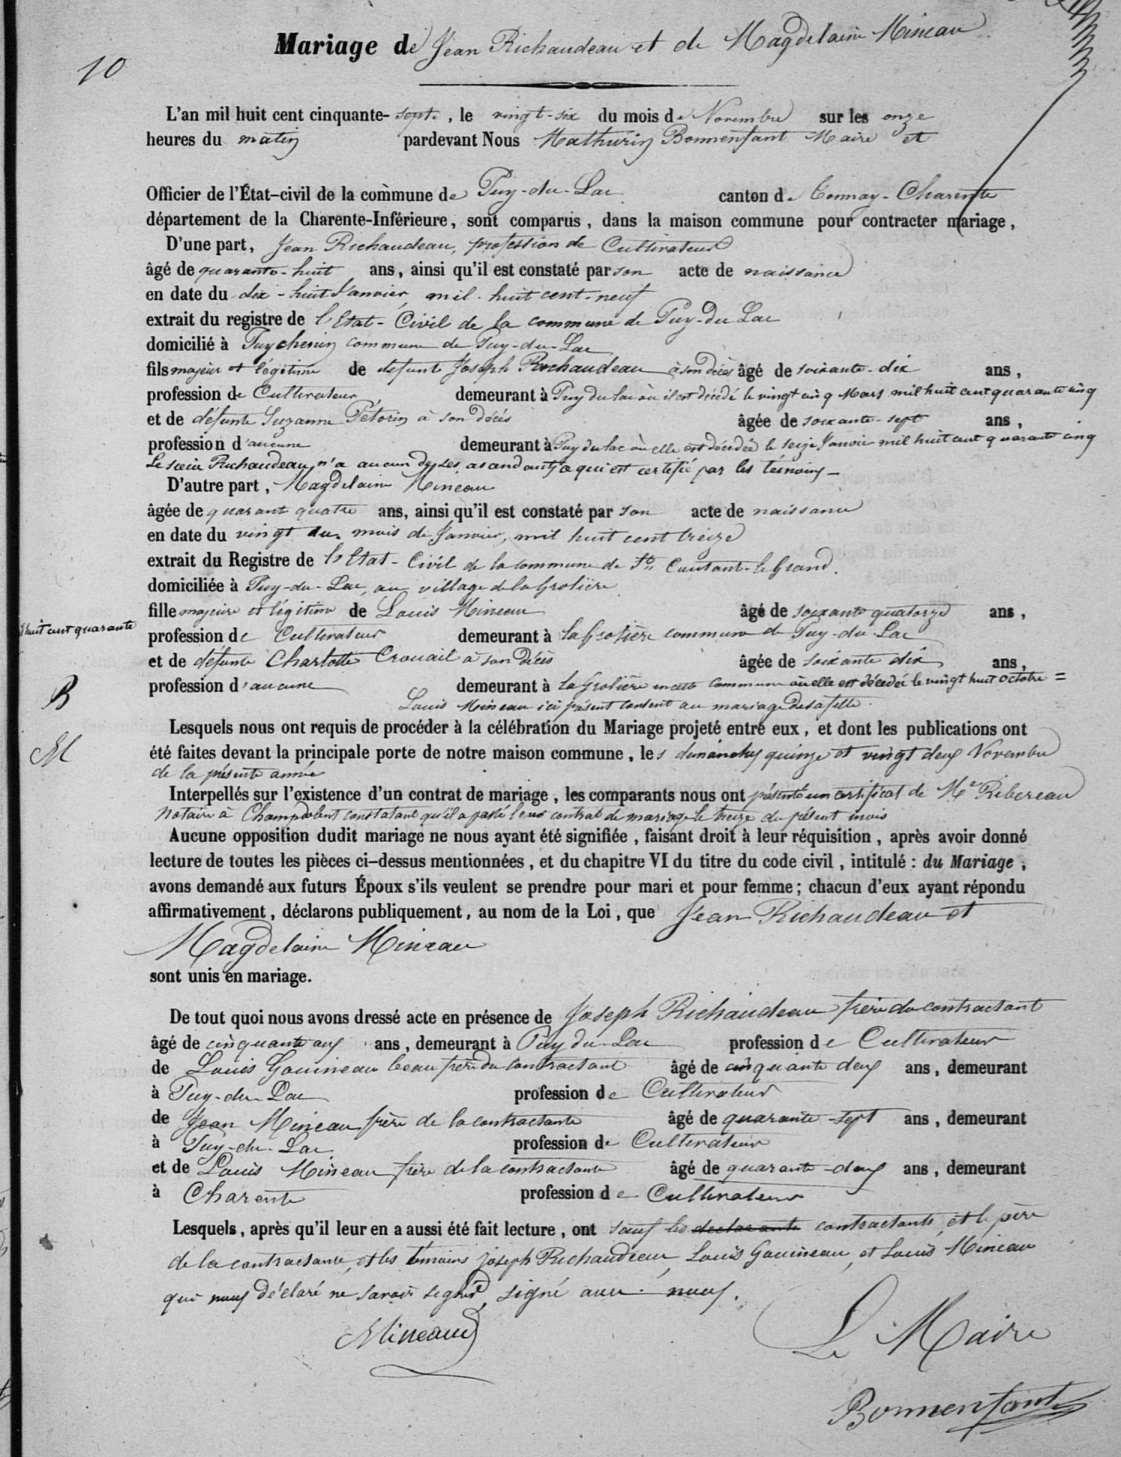 Mariage de Jean Richaudeau et de Magdelaine Mineau.
10
L'an mil huit cent cinquante-sept, le vingt-six du mois de Novembre sur les onze
heures du matin pardevant Nous Mathurin Bonnenfant Maire et
Officier de l'État-civil de la commune de Puy-du-Lac canton de Tonnay-Charente
département de la Charente-Inférieure, sont comparus, dans la maison commune pour contracter mariage,
D'une part, Jean Richaudeau, profession de Cultivateur
âgé de quarante-huit ans, ainsi qu'il est constaté par son acte de naissance
en date du dix-huit Janvier mil-huit cent-neuf
extrait du registre de l'Etat-Civil de la commune de Puy-du Lac
domicilié à Puychenin commune de Puy-du-Lac
fils majeur et légitime de défunt Joseph Richaudeau à son décès âgé de soixante-dix ans,
profession de Cultivateur demeurant à Puy du Lac où il est décédé le vingt cinq Mars mil huit cent quarante cinq
et de défunte Suzanne Petorin à son décès âgée de soixante-sept ans,
profession d'aucune demeurant à Puy du Lac où elle est décédée le seize Janvier mil huit cent quarante cinq
Le sieur Richaudeau n'a aucun de ses ascendants ce qui est certifié par les témoins
D'autre part, Magdelaine Mineau
âgée de quarante quatre ans, ainsi qu'il est constaté par son acte de naissance
en date du vingt du mois de Janvier, mil huit cent treize
extrait du Registre de l'Etat-Civil de la commune de St. Coutant-le-Grand.
domiciliée à Puy-du-Lac, au village de la Grolière
fille majeure et légitime de Louis Mineau âgé de soixante quatorze ans,
huit cent quarante
profession de Cultivateur demeurant à la Grolière commune de Puy-du-Lac
et de défunte Charlotte Crouail à son décès âgée de soixante dix ans,
B
profession d'aucune demeurant à la Grolière en cette commune où elle est décédée le vingt huit octobre =
Louis Mineau ici présent consent au mariage de sa fille.
Lesquels nous ont requis de procéder à la célébration du Mariage projeté entre eux, et dont les publications ont
M
été faites devant la principale porte de notre maison commune, les dimanches quinze et vingt deux Novembre
de la présente année
Interpellés sur l'existence d'un contrat de mariage, les comparants nous ont présenté un certificat de Me Ribereau
Notaire à Champdolent constatant qu'il a passé leur contrat de mariage le treize du présent mois
Aucune opposition dudit mariage ne nous ayant été signifiée, faisant droit à leur réquisition, après avoir donné
lecture de toutes les pièces ci-dessus mentionnées, et du chapitre VI du titre du code civil, intitulé : du Mariage,
avons demandé aux futurs Époux s'ils veulent se prendre pour mari et pour femme; chacun d'eux ayant répondu
affirmativement, déclarons publiquement, au nom de la Loi, que Jean Richaudeau et
Magdelaine Mineau
sont unis en mariage.
De tout quoi nous avons dressé acte en présence de Joseph Richaudeau frère du contractant
âgé de cinquante ans, demeurant à Puy du Lac profession de Cultivateur
de Louis Gouineau beau frère du contractant âgé de cinquante deux ans, demeurant
à Puy-du-Lac profession de Cultivateur
de Jean Mineau frère de la contractante âgé de quarante-sept ans, demeurant
à Puy-du-Lac profession de Cultivateur
et de Louis Mineau frère de la contractante âgé de quarante-deux ans, demeurant
à Charente profession de Cultivateur
Lesquels, après qu'il leur en a aussi été fait lecture, ont sauf les declarants contractants, et le père
de la contractante, et les témoins Joseph Richaudeau, Louis Gouineau, et Louis Mineau
qui nous déclaré ne savoir signer, signé avec nous.
Mineau
Le Maire
Bonnenfant